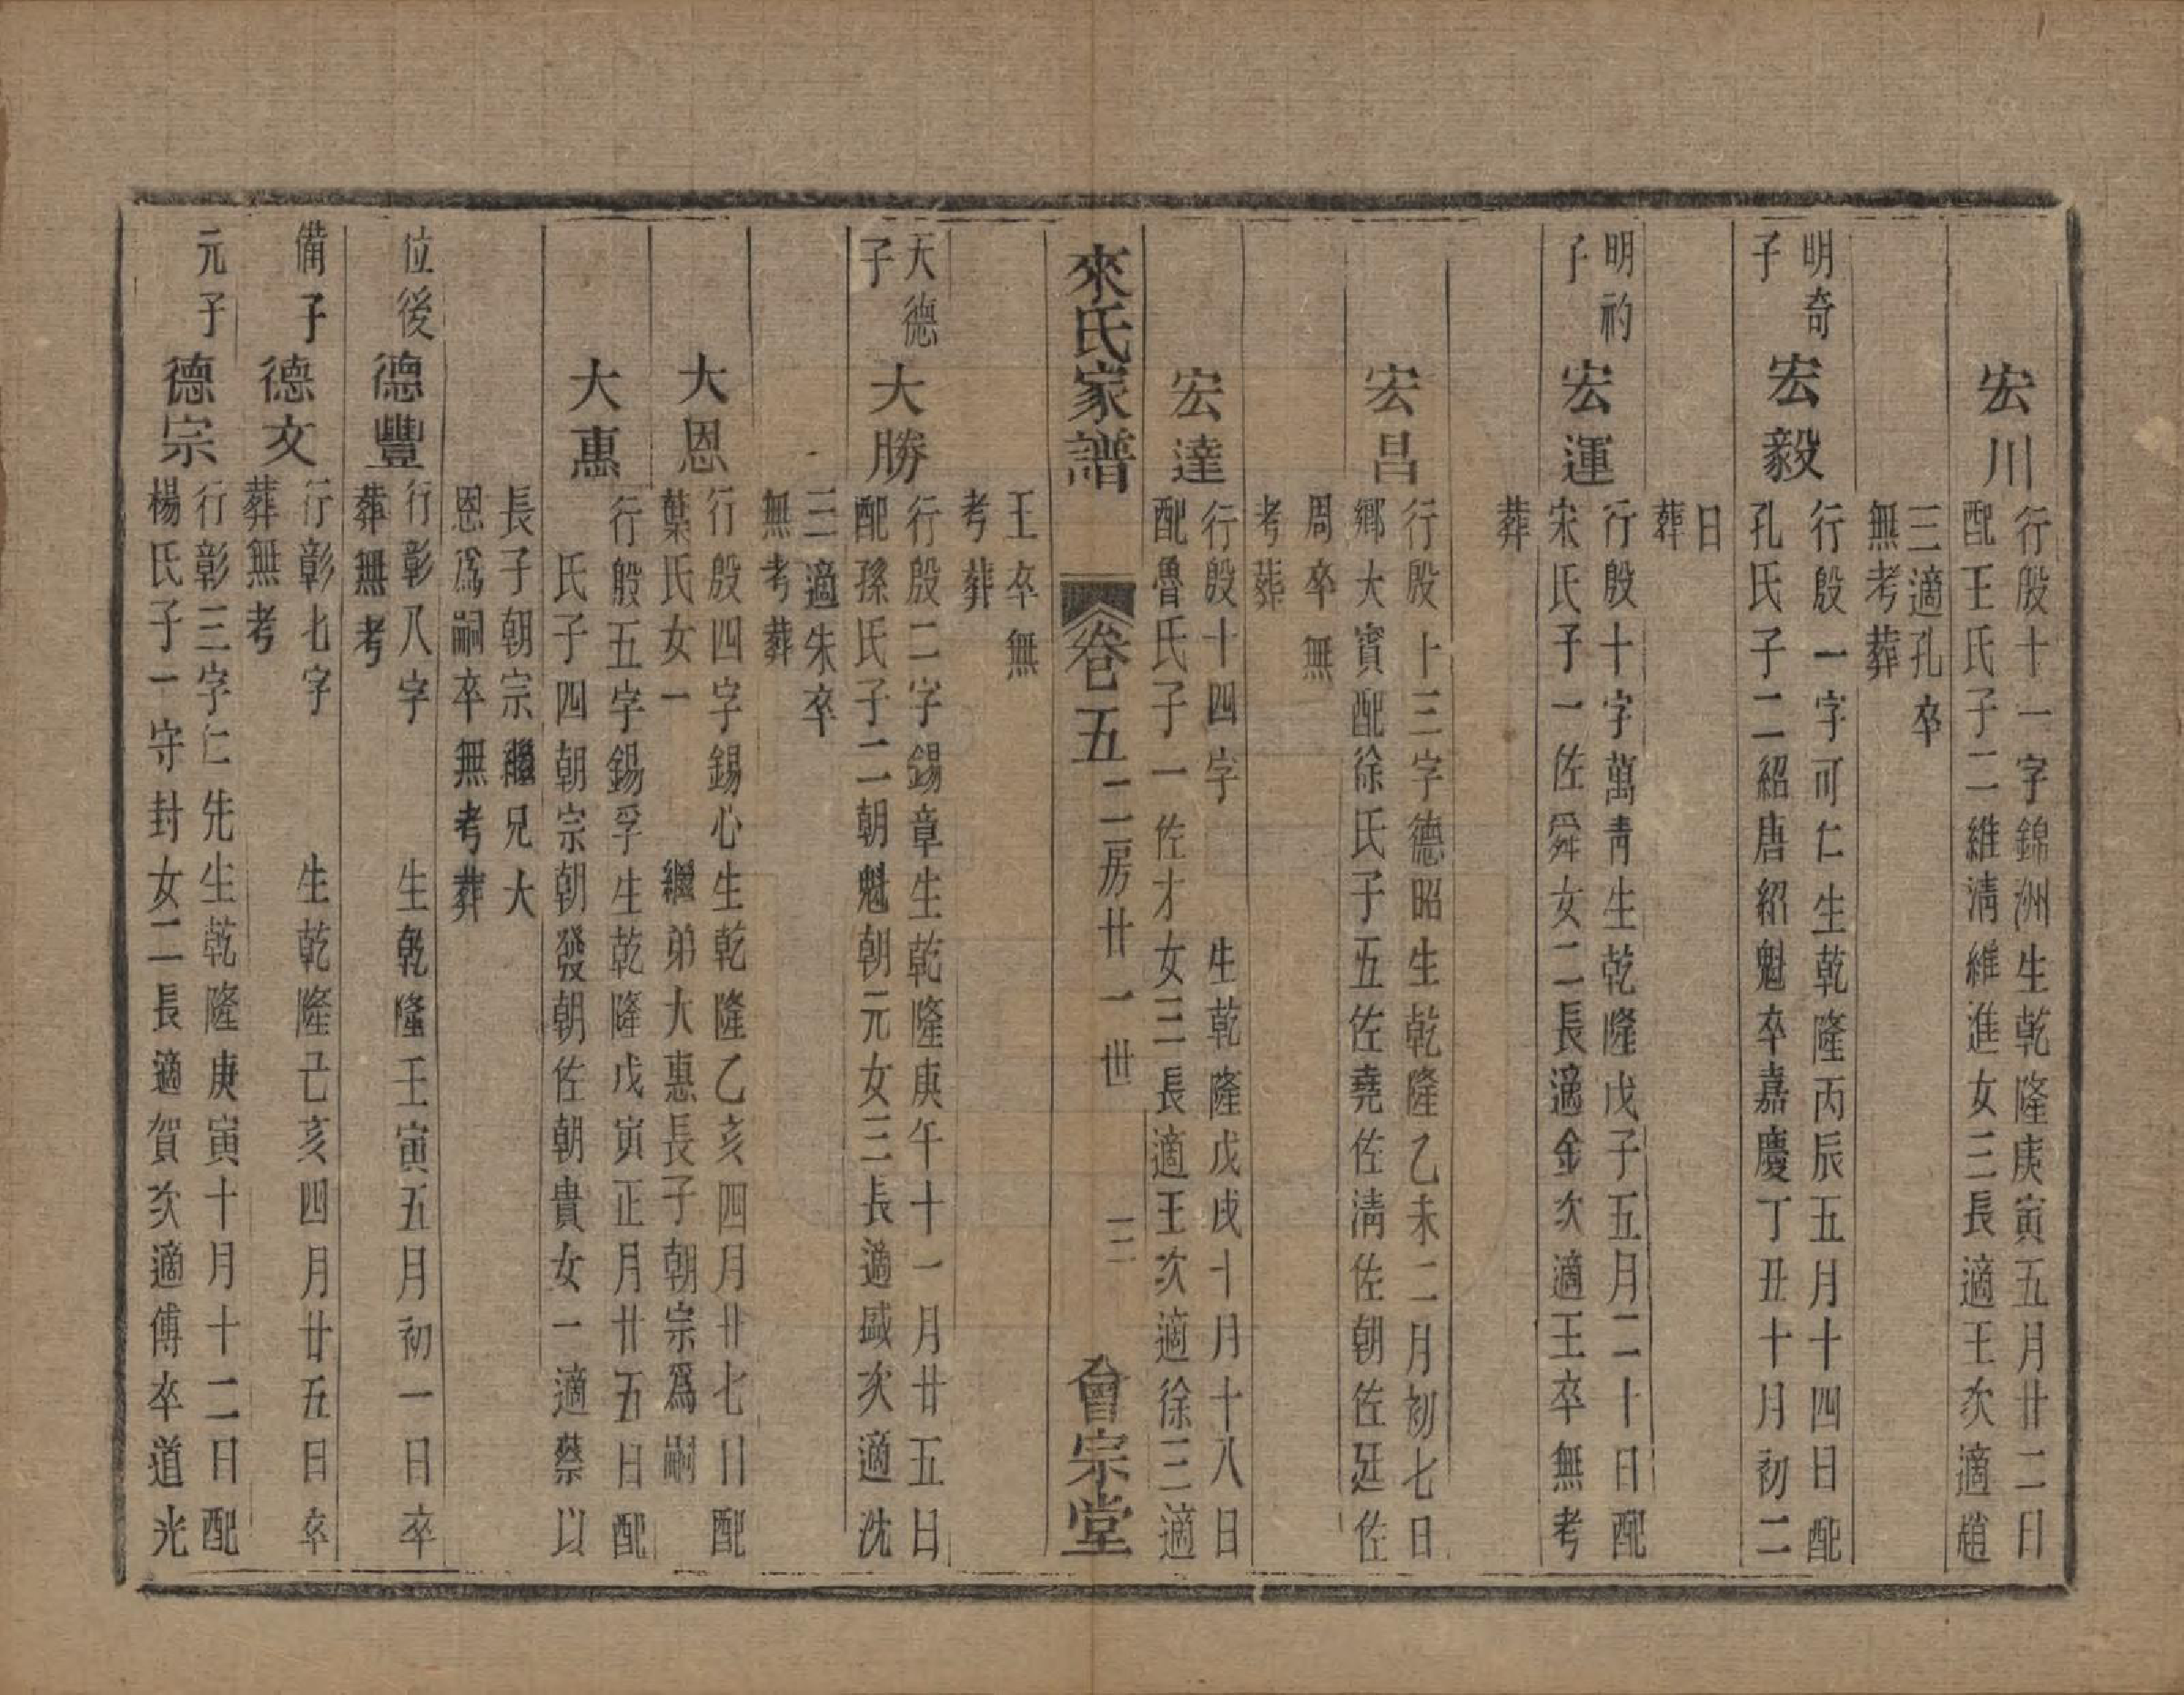 宏川
行殷十一字錦洲生乾隆庚寅五月廿二日
配王氏子二維清維進女三長適王次適趙
三適孔卒
無考葬
明奇
子
宏毅
行殷一字可仁生乾隆丙辰五月十四日配
孔氏子二紹唐紹魁卒嘉慶丁丑十月初二
日
葬
明礿
子
宏運
行殷十字萬青生乾隆戊子五月二十日配
宋氏子一佐舜女二長適金次適王卒無考
葬
宏昌
行殷十三字德昭生乾隆乙未二月初七日
鄉大賓配徐氏子五佐堯佐清佐朝佐廷佐
周卒無
考葬
宏達
行殷十四字 生乾隆戊戌十月十八日
配魯氏子一佐才女三長適王次適徐三適
來氏家譜 卷五 二房廿一世 三 會宗堂
王卒無
考葬
天德
子
大勝
行殷二字錫章生乾隆庚午十一月廿五日
配孫氏子二朝魁朝元女三長適盛次適沈
三適朱卒
無考葬
大恩
行殷四字錫心生乾隆乙亥四月廿七日配
葉氏女一 繼弟大惠長子朝宗爲嗣
大惠
行殷五字錫孚生乾隆戊寅正月廿五日配
氏子四朝宗朝發朝佐朝貴女一適蔡以
長子朝宗繼兄大
恩爲嗣卒無考葬
位後
德豐
行彰八字 生乾隆壬寅五月初一日卒
葬無考
備子
德文
行彰七字 生乾隆己亥四月廿五日卒
葬無考
元子
德宗
行彰三字仁先生乾隆庚寅十月十二日配
楊氏子一守封女二長適賀次適傅卒道光